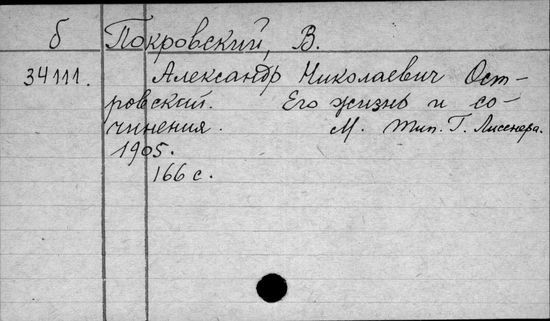 б Покровский, В.
34111. Александр Николаевич Ост-
ровский. Его жизнь и со-
чинения. М. Тип. Г. Лисснера.
1905.
166 с.